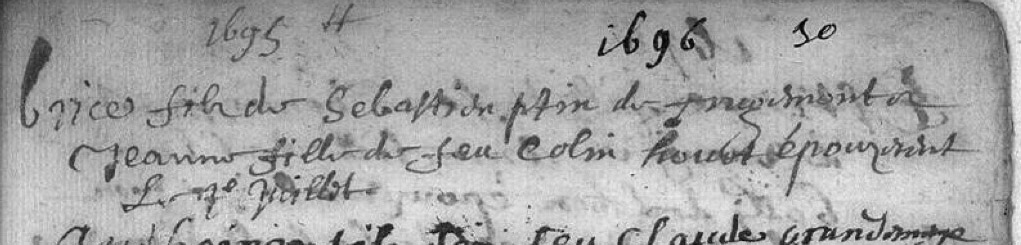 1695 H 1696 50
brice fils de Sebastien ptin de &
Jeanne fille de feu Colin houot épouzerent
Le 7e Juillet
fils feu Claude grand